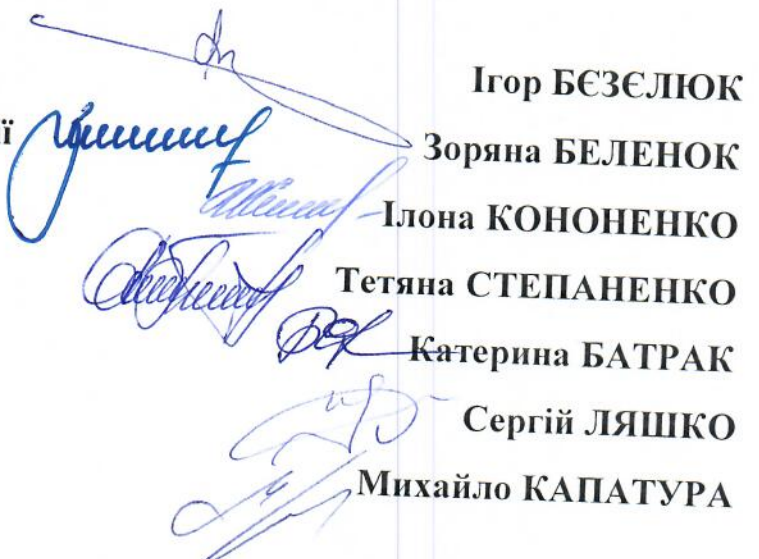 Ігор БЄЗЄЛЮК
ї Зоряна БЕЛЕНОК
Ілона КОНОНЕНКО
Тетяна СТЕПАНЕНКО
Катерина БАТРАК
Сергій ЛЯШКО
Михайло КАПАТУРА